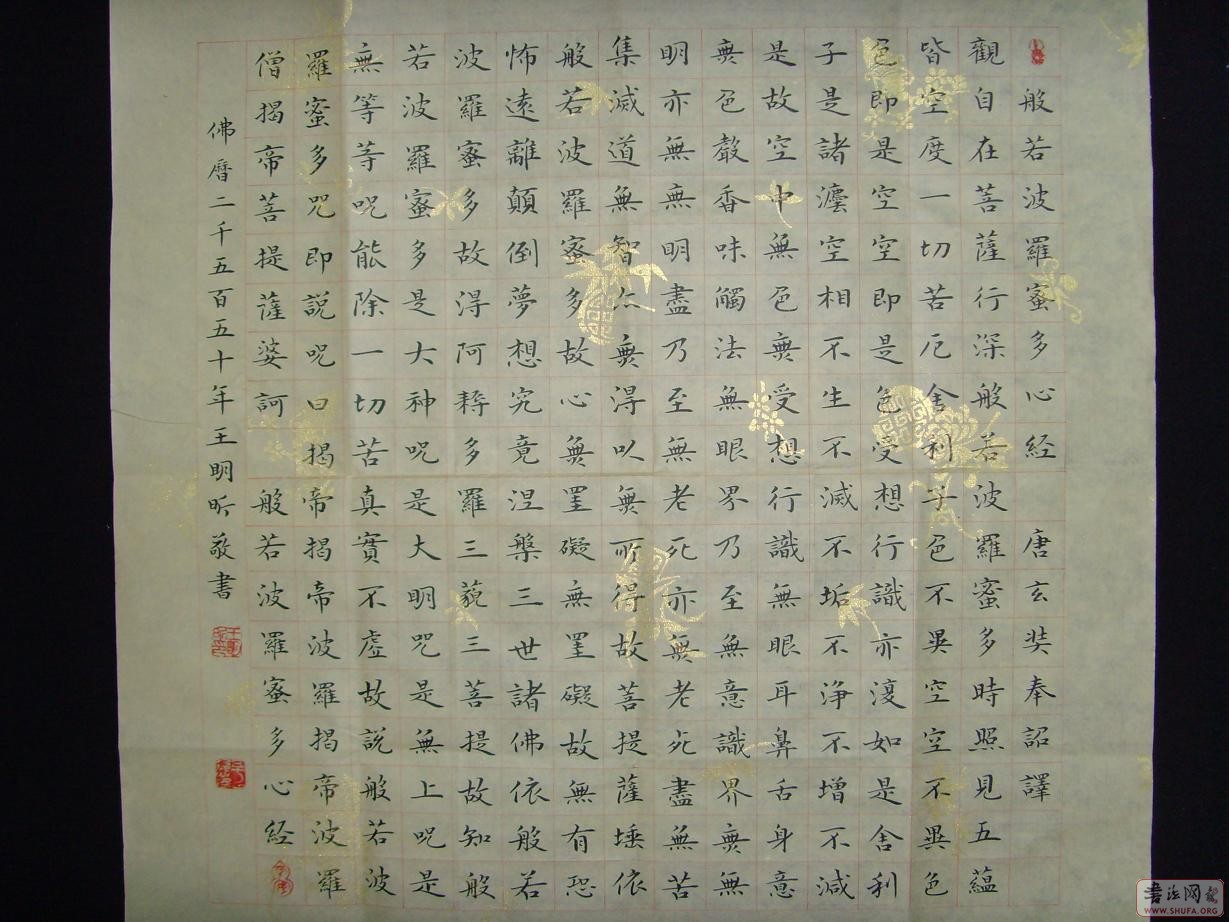 般若波羅蜜多心经 唐玄奘奉詔譯
觀自在菩薩行深般若波羅蜜多時照見五蘊
皆空度一切苦厄舍利子色不異空空不異色
色即是空空即是色受想行識亦復如是舍利
子是諸灋空相不生不滅不垢不淨不增不減
是故空中無色無受想行識無眼耳鼻舌身意
無色聲香味觸法無眼界乃至無意識界無無
明亦無無明盡乃至無老死亦無老死盡無苦
集滅道無智亦無得以無所得故菩提薩埵依
般若波羅蜜多故心無罣礙無罣礙故無有恐
怖遠離顛倒夢想究竟涅槃三世諸佛依般若
波羅蜜多故得阿耨多羅三藐三菩提故知般
若波羅蜜多是大神呪是大明呪是無上呪是
無等等呪能除一切苦真實不虛故説般若波
羅蜜多咒即説呪曰揭帝揭帝波羅揭帝波羅
僧揭帝菩提薩婆訶 般若波羅蜜多心经
佛曆二千五百五十年王明昕敬書
書法网
WWW.SHUFA.ORG